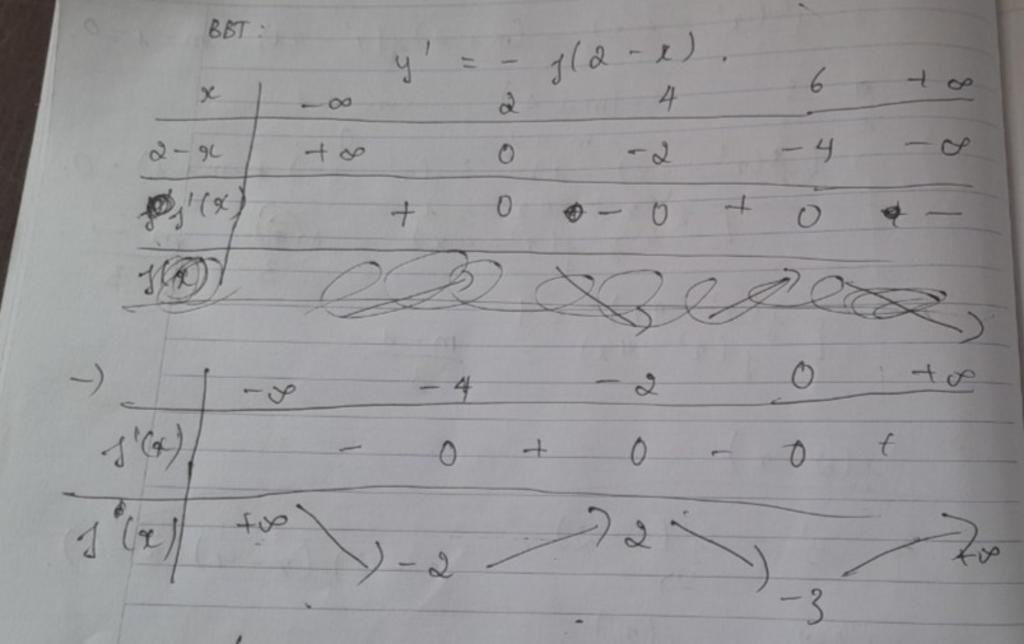 BBT:
y' = - f(2 - x).
x -∞ 2 4 6 +∞
2-x +∞ 0 -2 -4 -∞
f'(x) + 0 - 0 + 0 -
f(x)
→) -∞ -4 -2 0 +∞
f'(x) - 0 + 0 - 0 +
f(x) +∞ -2 2 -3 +∞